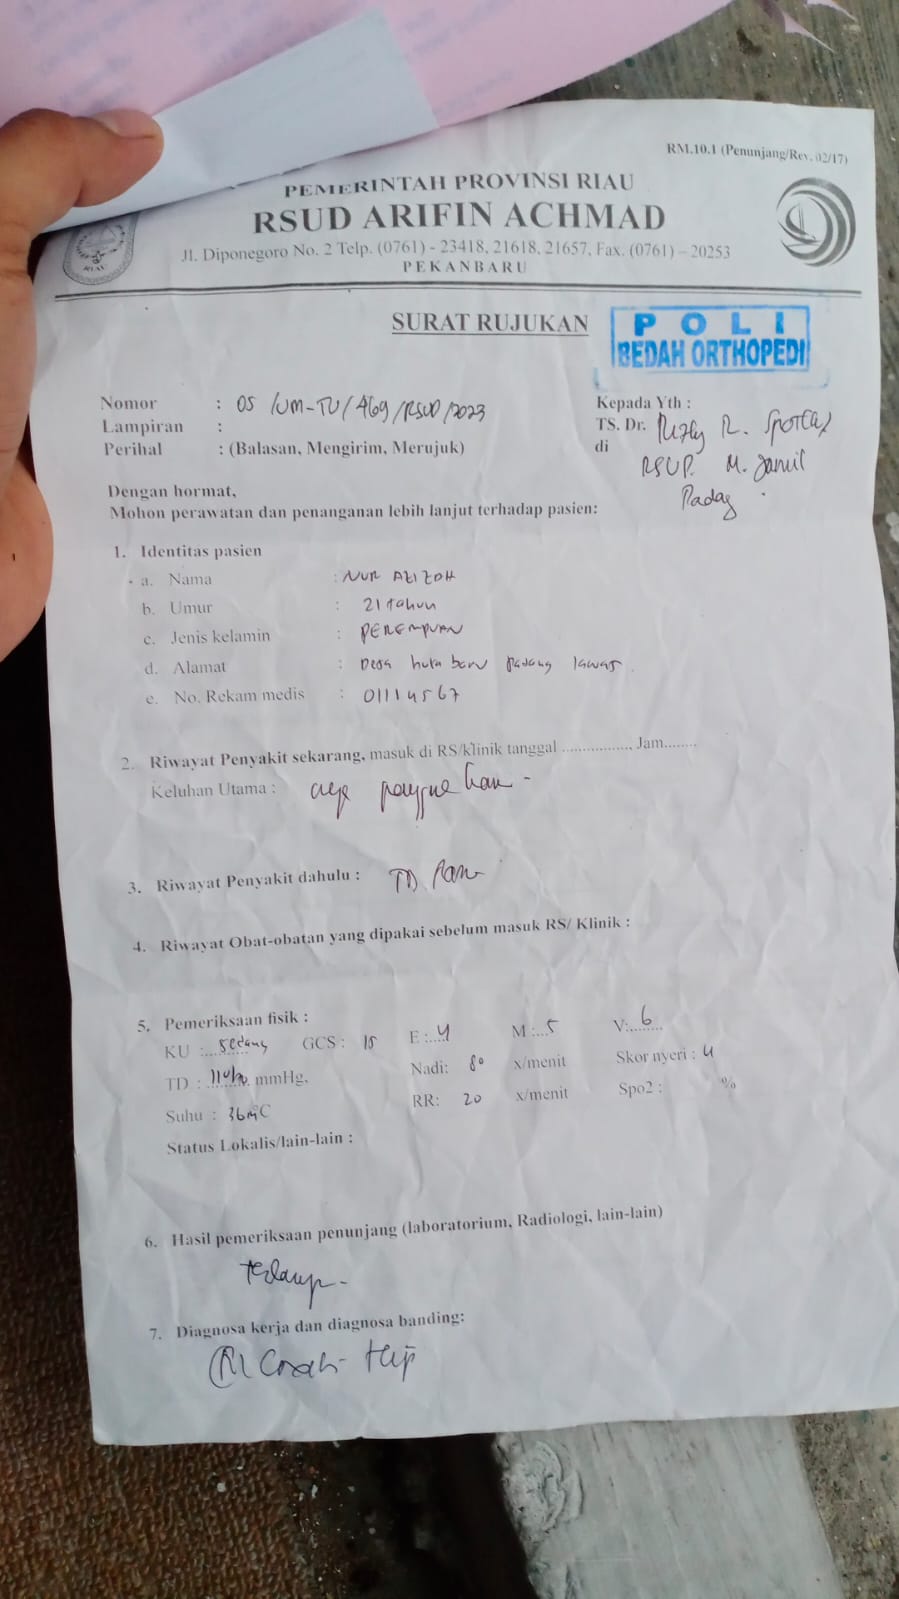 RM.10.1 (Penunjang/Rev. 02/17)
PEMERINTAH PROVINSI RIAU
RSUD ARIFIN ACHMAD
Jl. Diponegoro No. 2 Telp. (0761) - 23418, 21618, 21657, Fax. (0761) – 20253
PEKANBARU
RIAU
SURAT RUJUKAN
POLI
BEDAH ORTHOPEDI
Nomor : 05 /UM-TU/469/RSUD/2023
Lampiran :
Perihal : (Balasan, Mengirim, Merujuk)
Kepada Yth :
TS. Dr. R.
di RSUP. M. Jamil
Padang
Dengan hormat,
Mohon perawatan dan penanganan lebih lanjut terhadap pasien:
1. Identitas pasien
a. Nama : NUR AZIZOH
b. Umur : 21 tahun
c. Jenis kelamin : PEREMPUAN
d. Alamat : Desa huta baru padang lawas
e. No. Rekam medis : 01114567
2. Riwayat Penyakit sekarang, masuk di RS/klinik tanggal ................. Jam........
Keluhan Utama :
3. Riwayat Penyakit dahulu :
4. Riwayat Obat-obatan yang dipakai sebelum masuk RS/ Klinik :
5. Pemeriksaan fisik :
KU : sedang GCS : 15 E : 4 M : 5 V : 6
TD : mmHg. Nadi: 80 x/menit Skor nyeri : 4
Suhu : C RR: 20 x/menit Spo2 : %
Status Lokalis/lain-lain :
6. Hasil pemeriksaan penunjang (laboratorium, Radiologi, lain-lain)
Terlampir
7. Diagnosa kerja dan diagnosa banding:
Hip